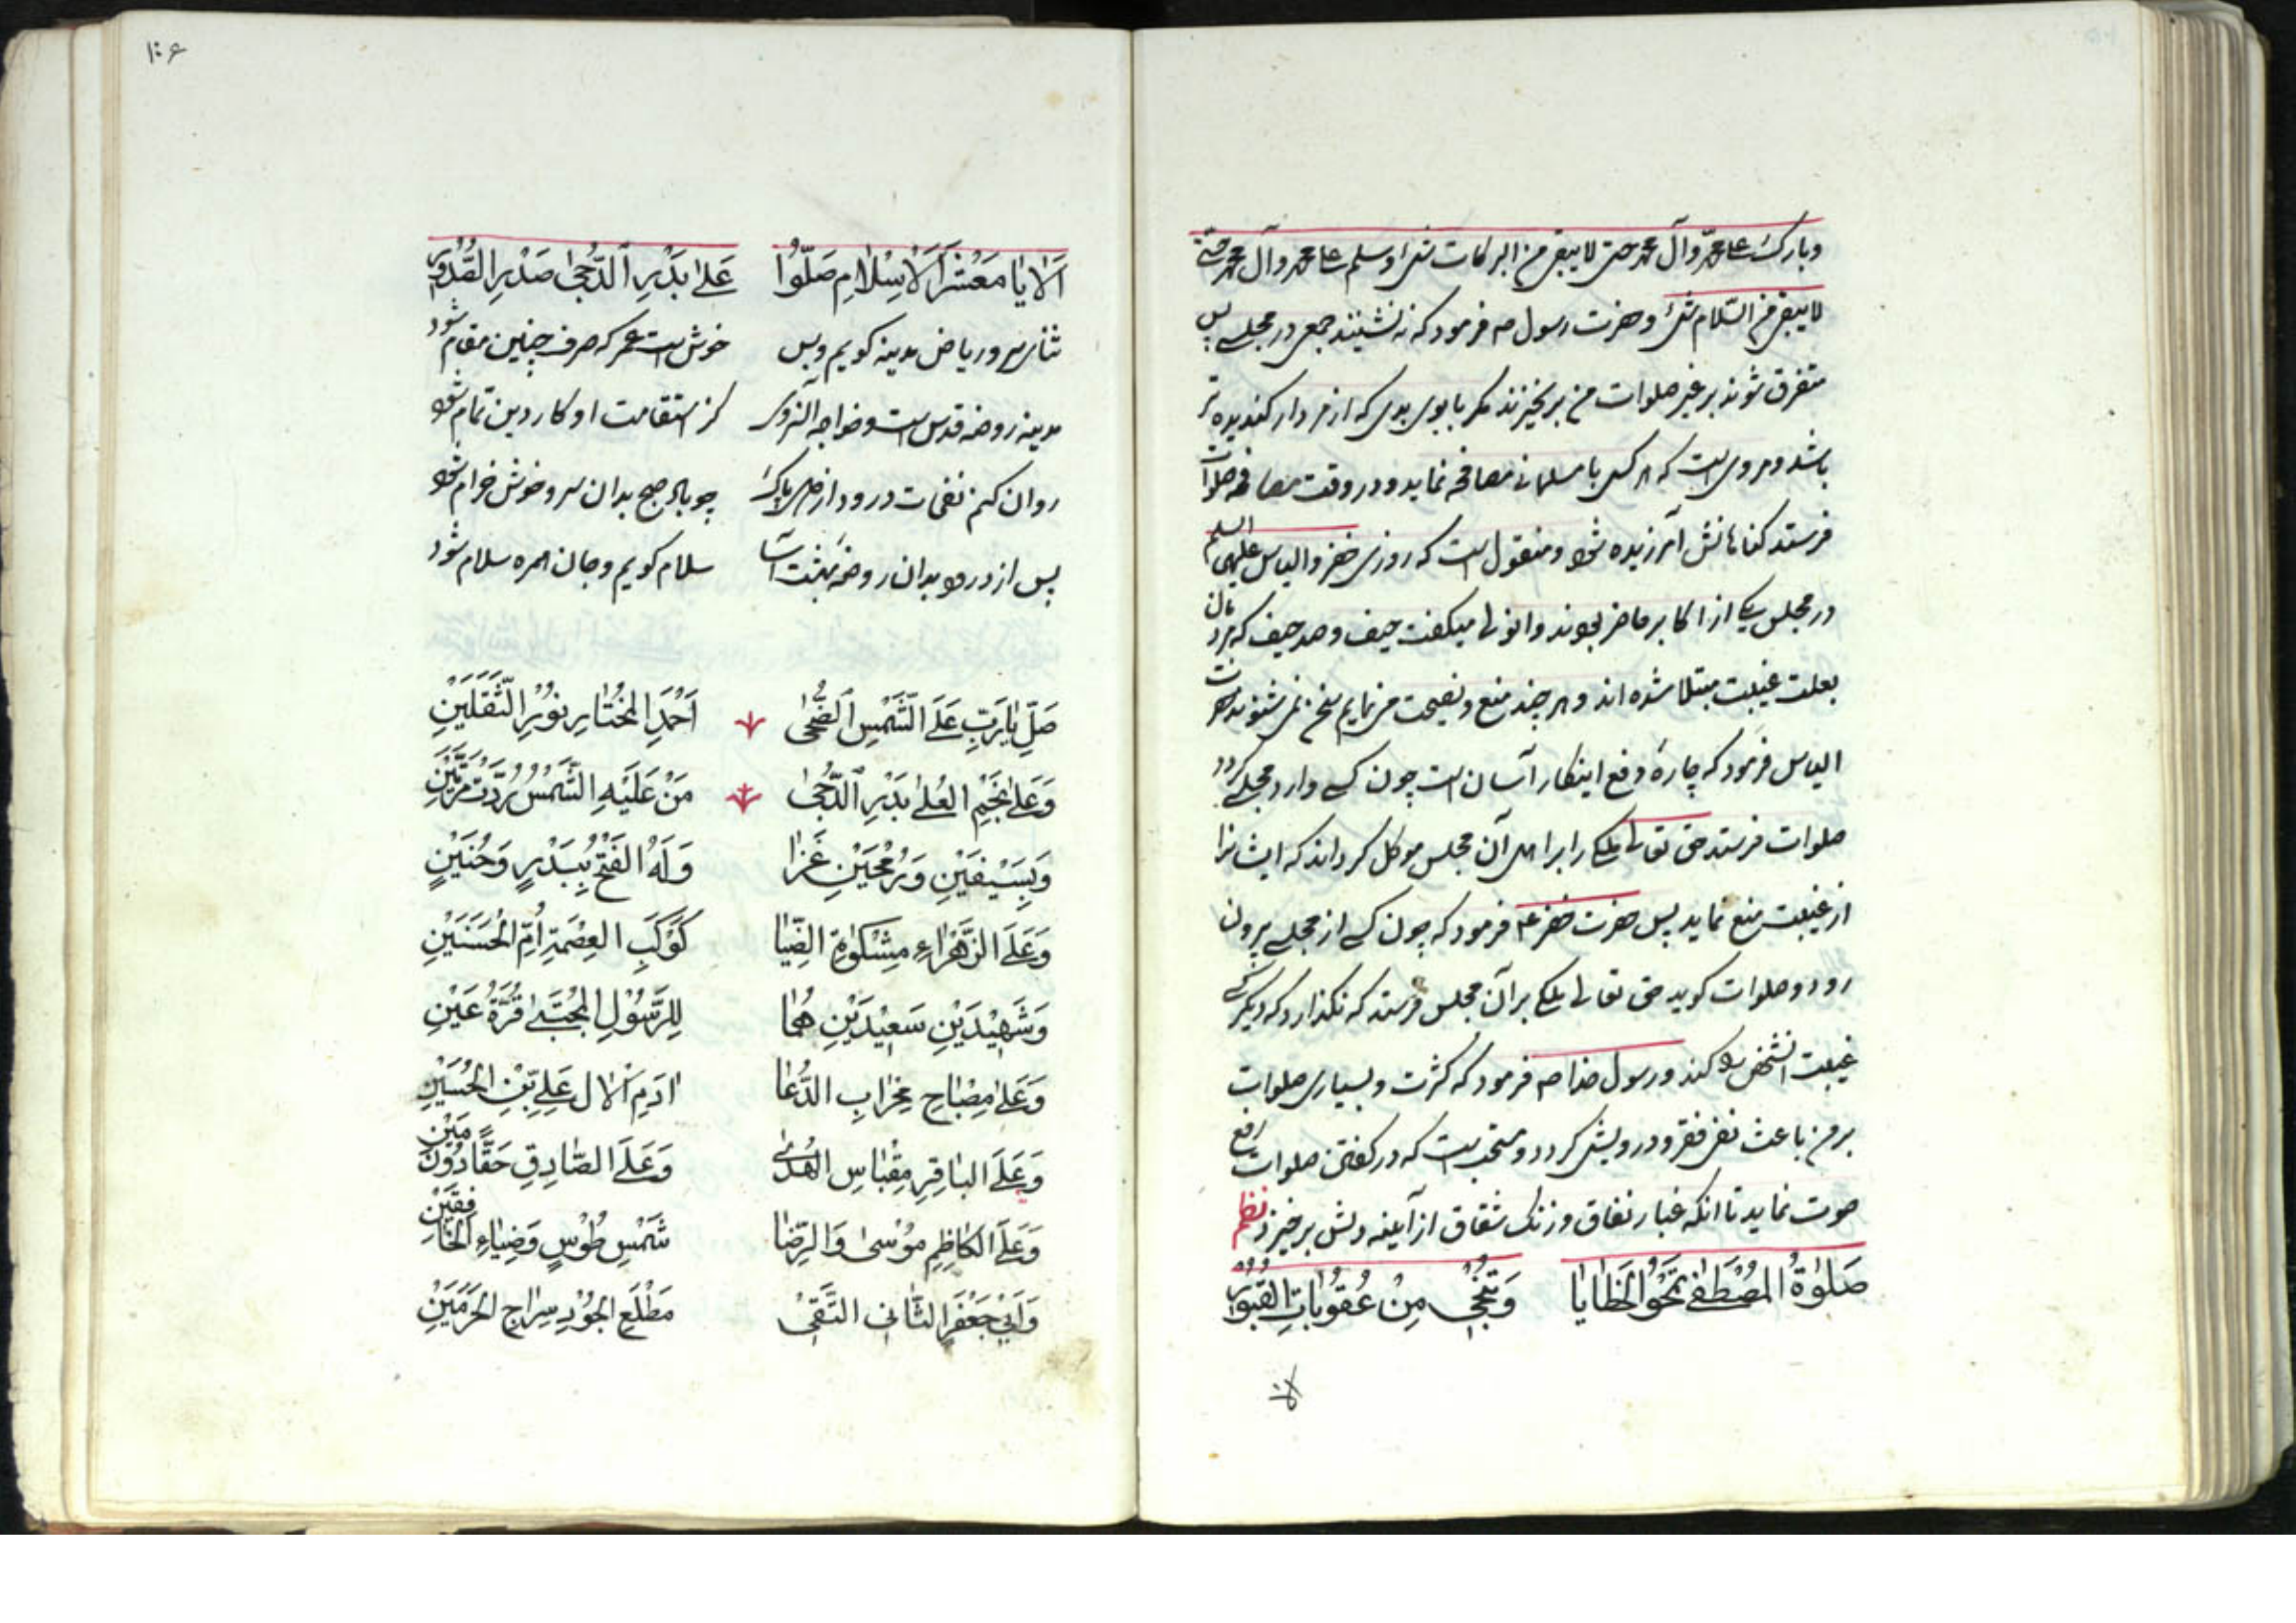 وبارک علی محمد وآل محمد حتی لا یبقی من البرکات شئ وسلم علی محمد وآل محمد حتی
لا یبقی من السّلام شئ وحضرت رسول صم فرمود که نه نشینند جمعی در مجلسی پس
متفرق شوند بر غیر صلوات من بر نخیزند مکر با بوی بدی که از مردار کندیده تر
باشد ومروی است که هر کس با مسلمانی مصافحه نماید ودر وقت مصافحه صلوات
فرستد کناهانش آمرزیده شود ومنقول است که روزی خضر والیاس علیهما السلم
در مجلس یکی از اکابر حاضر بودند میکفت حیف وصد حیف که مردمان
بعلت غیبت مبتلا شده اند وهر چند منع ونصیحت می نمایم سخن نمی شنوند حضرت
الیاس فرمود که چارهٔ دفع اینکار آسان است چون کسی وارد مجلسی کردد
صلوات فرستد حق تعالی ملکی را بر اهل آن مجلس موکل کرداند که ایشانرا
از غیبت منع نماید پس حضرت خضر ع فرمود که چون کسی از مجلسی بیرون
رود وصلوات کوید حق تعالی ملکی بر آن مجلس فرستد که نکذارد که دیکر کسی
غیبت آنشخص کند ورسول خدا صم فرمود که کثرت وبسیاری صلوات
بر من باعث نفی فقر ودرویشی کردد ومستحب است که در کفتن صلوات رفع
صوت نماید تا انکه غبار نفاق وزنک شقاق از آینه دلش بر خیزد نظم
صَلوٰةُ المُصْطَفیٰ تَمْحُو الخَطایٰا وَتُنْجی مِنْ عُقُوباتِ القُبُورِ
الا
۱۰۶
اَلا یٰا مَعْشَرَ الْاِسْلامِ صَلُّوا عَلیٰ بَدْرِ الدُّجیٰ صَدْرِ الصُّدُورِ
ثنای سرور ریاض مدینه کویم وبس خوش است عمر که صرف چنین مقام شود
مدینه روضه قدس است وخواجه کز استقامت او کار دین تمام شود
روان کنم نفحات درود از دل پاک چو باد صبح بدان سرو خوش خرام شود
پس از درود بدان روضهٔ بهشت آسا سلام کویم وجان همره سلام شود
صَلِّ یٰا رَبِّ عَلَی الشَّمْسِ الضُّحیٰ اَحْمَدِ المُخْتٰارِ نُورِ الثَّقَلَیْنِ
وَعَلیٰ نَجْمِ العُلیٰ بَدْرِ الدُّجیٰ مَنْ عَلَیْهِ الشَّمْسُ رُدَّتْ مَرَّتَیْنِ
وَبِسَیْفَیْنِ وَرُمْحَیْنِ غَزٰا وَلَهُ الفَتْحُ بِبَدْرٍ وَحُنَیْنٍ
وَعَلَی الزَّهْرٰاءِ مِشْکٰوةِ الضِّیٰا کَوْکَبِ العِصْمَةِ اُمِّ الحَسَنَیْنِ
وَشَهِیْدَیْنِ سَعِیْدَیْنِ هُمٰا لِلرَّسُولِ المُجْتَبیٰ قُرَّةُ عَیْنِ
وَعَلیٰ مِصْبٰاحِ مِحْرٰابِ الدُّعٰا اٰدَمِ الاٰلِ عَلِیِّ بْنِ الحُسَیْنِ
وَعَلَی البٰاقِرِ مِقْبٰاسِ الهُدیٰ وَعَلَی الصّٰادِقِ حَقًّا دُونَ مَیْنِ
وَعَلَی الکٰاظِمِ مُوْسیٰ وَالرِّضٰا شَمْسِ طُوْسٍ وَضِیٰاءِ الخٰافِقَیْنِ
وَاَبِیْ جَعْفَرٍ الثّٰانی التَّقیْ مَطْلَعِ الجُوْدِ سِرٰاجِ الحَرَمَیْنِ